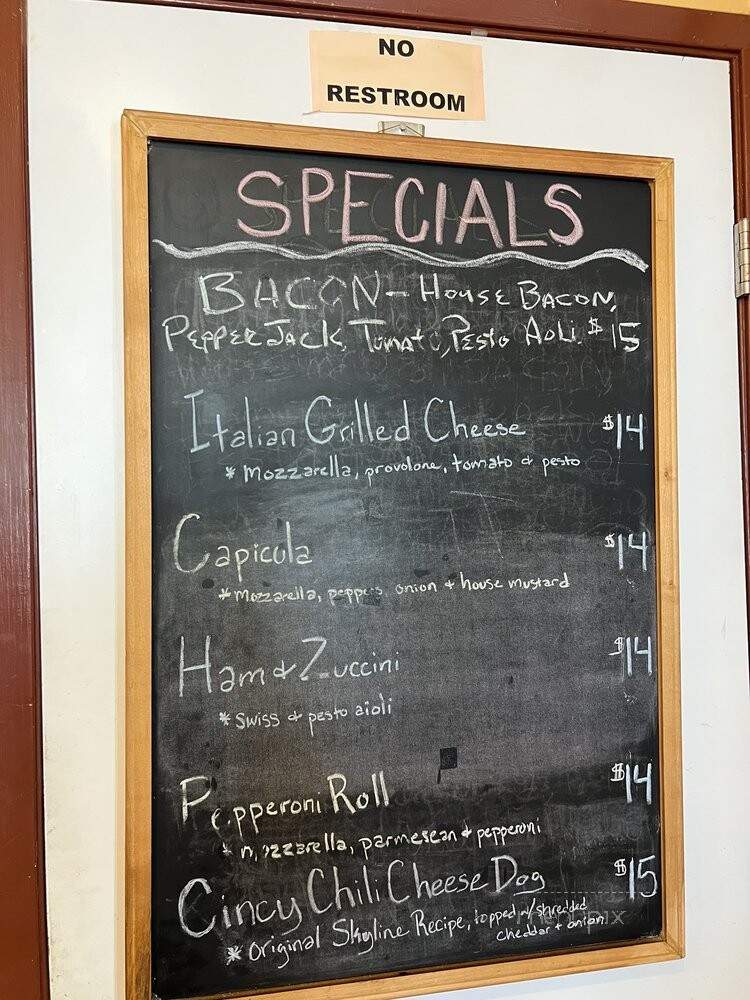 NO
RESTROOM
SPECIALS
BACON - HOUSE BACON,
PEPPER JACK, TOMATO, PESTO AOLI $15
Italian Grilled Cheese $14
* Mozzarella, provolone, tomato & pesto
Capicula $14
* Mozzarella, peppers, onion + house mustard
Ham & Zuccini $14
* Swiss & pesto aioli
Pepperoni Roll $14
* mozzarella, parmesean & pepperoni
Cincy Chili Cheese Dog $15
* Original Skyline Recipe, topped w/ shredded
cheddar + onion